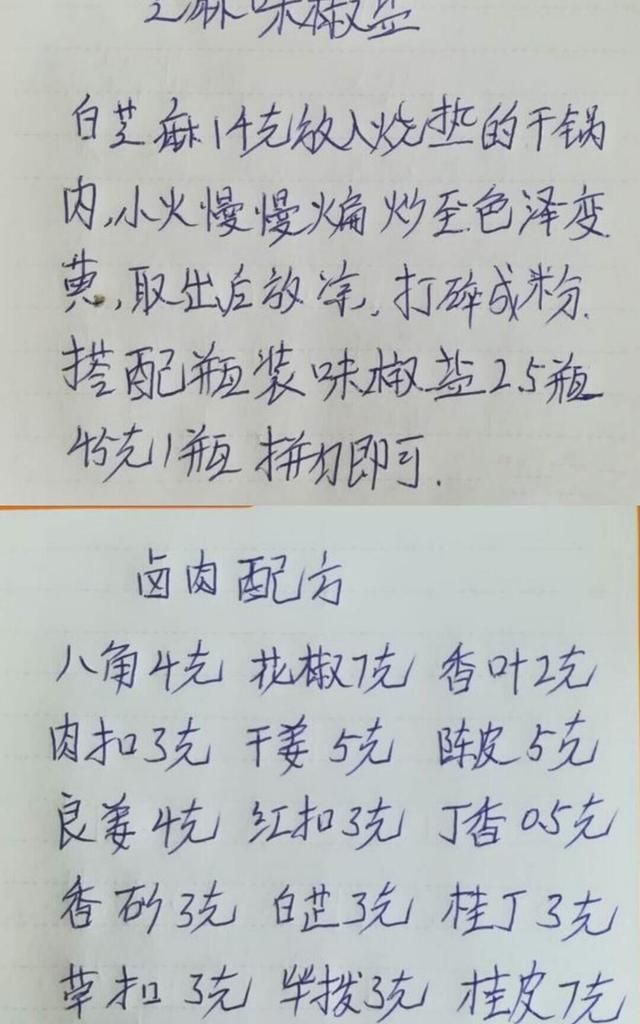 芝麻味椒盐
白芝麻14克放入烧热的干锅
内,小火慢慢煸炒至色泽变
黄,取出后放凉,打碎成粉.
搭配瓶装味椒盐2.5瓶
45克1瓶 拼匀即可.
卤肉配方
八角4克 花椒7克 香叶2克
肉扣3克 干姜5克 陈皮5克
良姜4克 红扣3克 丁香0.5克
香砂3克 白芷3克 桂丁3克
草扣3克 毕拨3克 桂皮7克